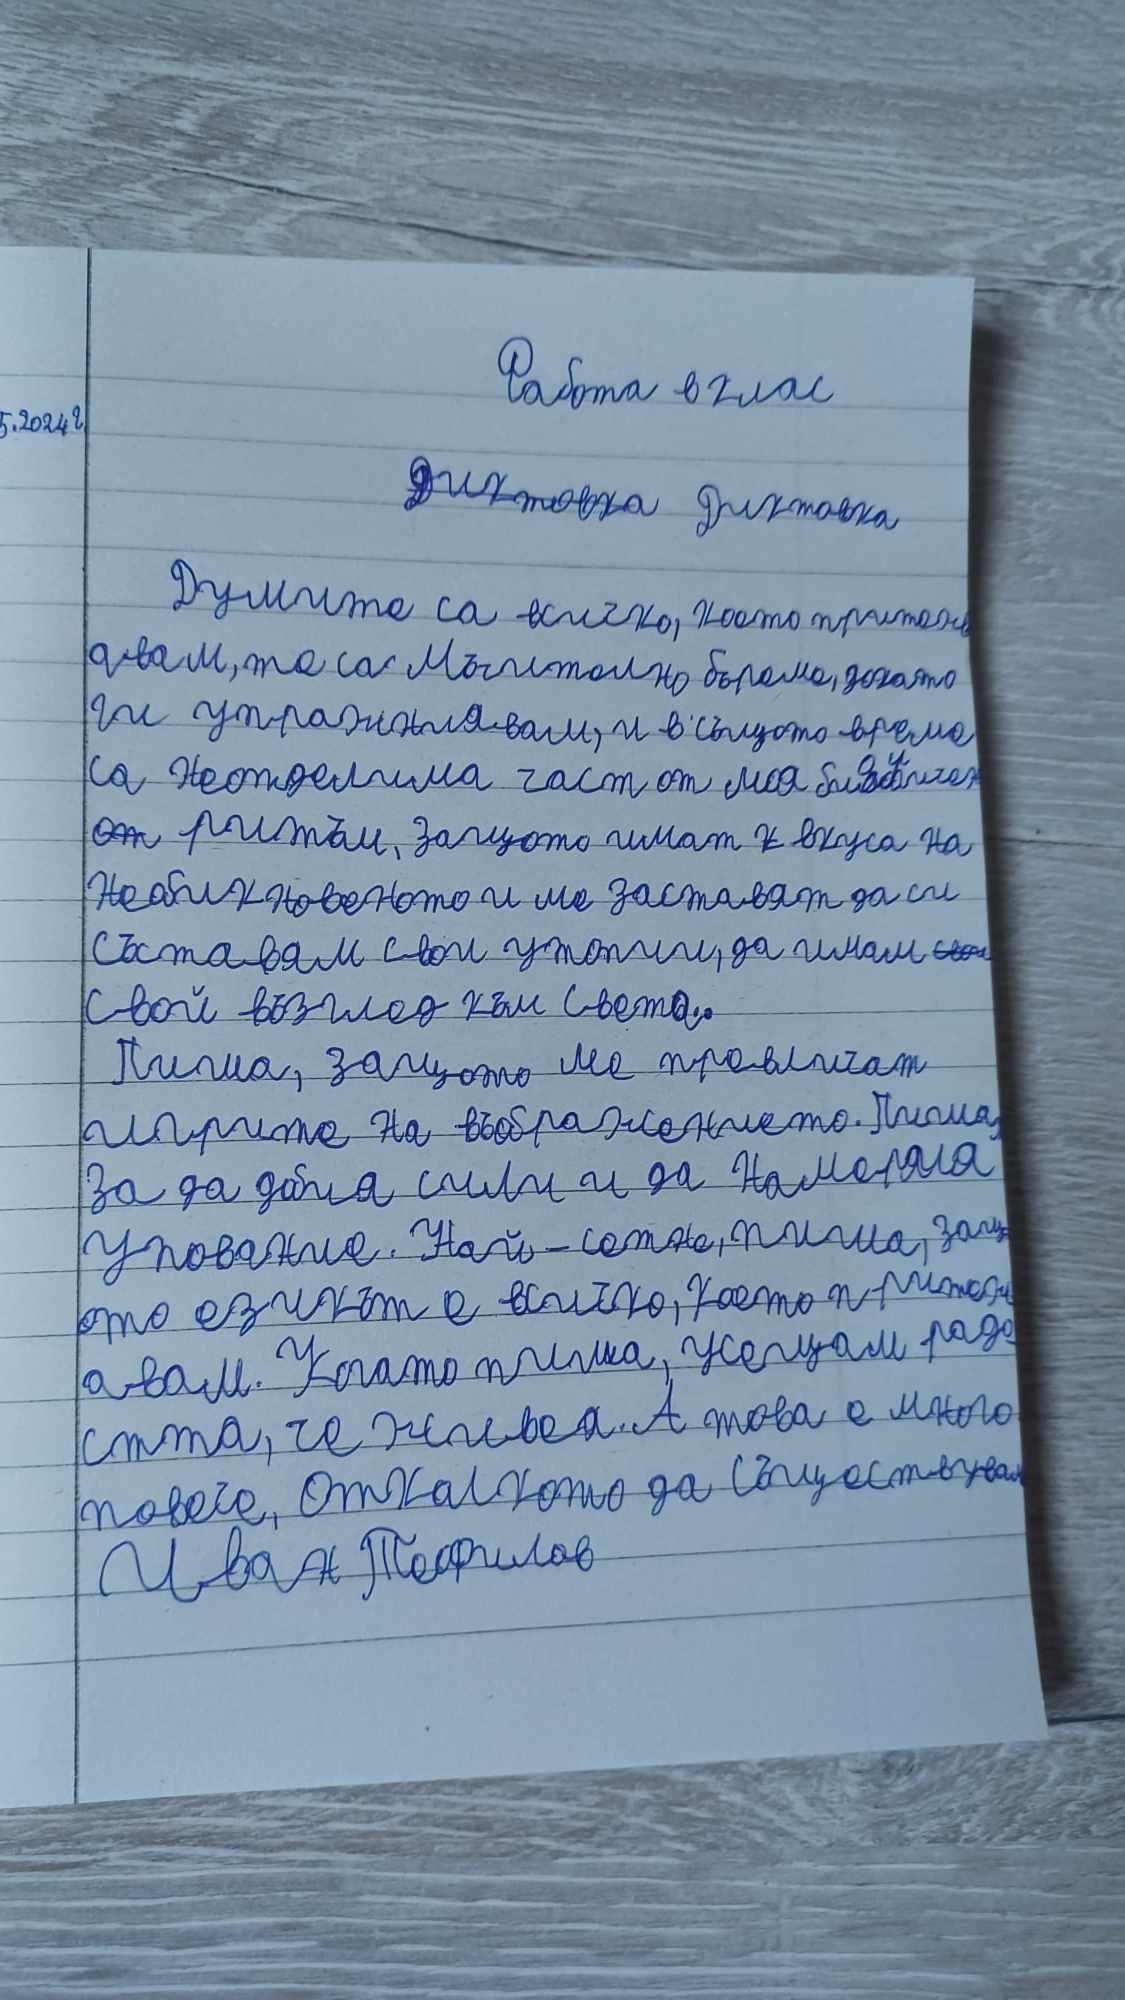 Работа в клас
5.2024г.
Диктовка Диктовка
Думите са всичко, което притеж
авам, те са мъчително бреме, докато
ги упражнявам, и в същото време
са неотделима част от моя
от ритъм, защото имат к вкуса на
необикновеното и ме заставят да си
съставям свои утопии, да имам свои
свой възглед към света..
Пиша, защото ме привличат
игрите на въображението. Пиша,
за да добия сили и да намеря
упование. Най-сетне, пиша, защ
ото езикът е всичко, което притеж
авам. Когато пиша, усещам радо
стта, че живея. А това е много
повече, отколкото да съществувам
Иван Теофилов